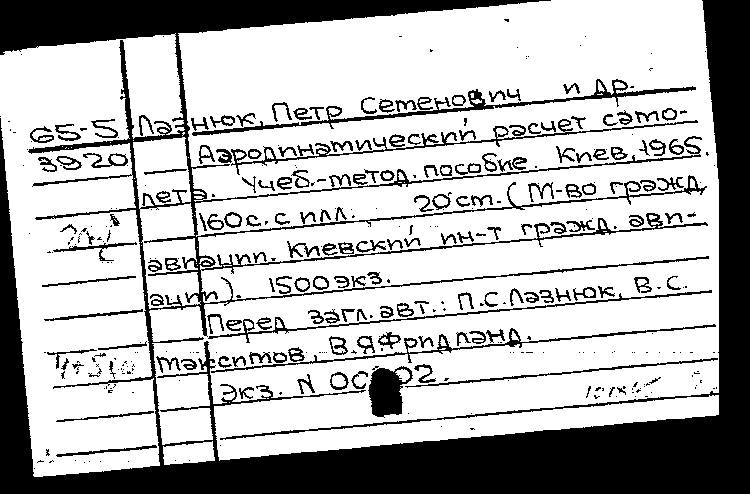 65-5 Лазнюк, Петр Семенович и др.
3920 Аэродинамический расчет само-
лета. Учеб.-метод. пособие. Киев, 1965.
160с. с илл. 20см. (М-во гражд.
авиации. Киевский ин-т гражд. ави-
ации). 1500 экз.
Перед загл. авт.: П.С.Лазнюк, В.С.
Максимов, В.Я.Фридланд.
Экз. N 00 02.